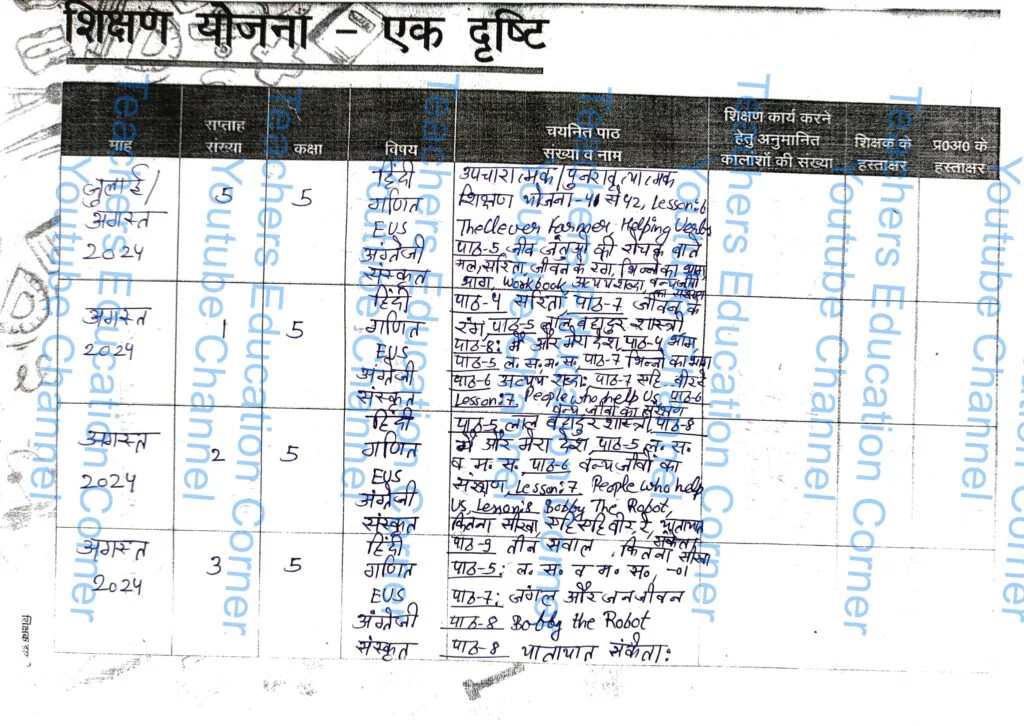 शिक्षण योजना – एक दृष्टि
माह
सप्ताह संख्या
कक्षा
विषय
चयनित पाठ संख्या व नाम
शिक्षण कार्य करने हेतु अनुमानित कालांशों की संख्या
शिक्षक के हस्ताक्षर
प्र0अ0 के हस्ताक्षर
जुलाई/
अगस्त
2024
5
5
हिंदी
गणित
EVS
अंग्रेजी
संस्कृत
उपचारात्मक/पुनरावृत्यात्मक
शिक्षण योजना-41 से 42, Lesson:6
The Clever Farmer, Helping Verbs
पाठ-5, जीव जंतुओं की रोचक बातें
सरिता, जीवन के रंग, भिन्न का
भाग, Workbook
अगस्त
2024
1
5
हिंदी
गणित
EVS
अंग्रेजी
संस्कृत
पाठ-4 सरिता, पाठ-7 जीवन के
रंग, पाठ-5 लाल बहादुर शास्त्री
पाठ-8: मैं और मेरा देश, पाठ-4 भाग
पाठ-5 ल. स. म. स., पाठ-7 भिन्नों का भाग
पाठ-6 पाठ-7
Lesson:7, People who help Us, पाठ-6
वन्य जीवों का संरक्षण
अगस्त
2024
2
5
हिंदी
गणित
EVS
अंग्रेजी
संस्कृत
पाठ-5, लाल बहादुर शास्त्री, पाठ-8
मैं और मेरा देश, पाठ-5, ल. स.
व म. स. पाठ-6 वन्यजीवों का
संरक्षण, Lesson:7 People who help
Us, Lesson:8 Bobby The Robot,
कितना सीखा, यातायात
संकेताः
अगस्त
2024
3
5
हिंदी
गणित
EVS
अंग्रेजी
संस्कृत
पाठ-9 तीन सवाल, कितना सीखा
पाठ-5: ल. स. व म. स., -01
पाठ-7; जंगल और जनजीवन
पाठ-8 Bobby the Robot
पाठ-8 यातायात संकेताः
Teachers Education Corner
Youtube Channel
Teachers Education Corner
Youtube Channel
Teachers Education Corner
Youtube Channel
Teachers Education Corner
Youtube Channel
Teachers Education Corner
Youtube Channel
Teachers Education Corner
Youtube Channel